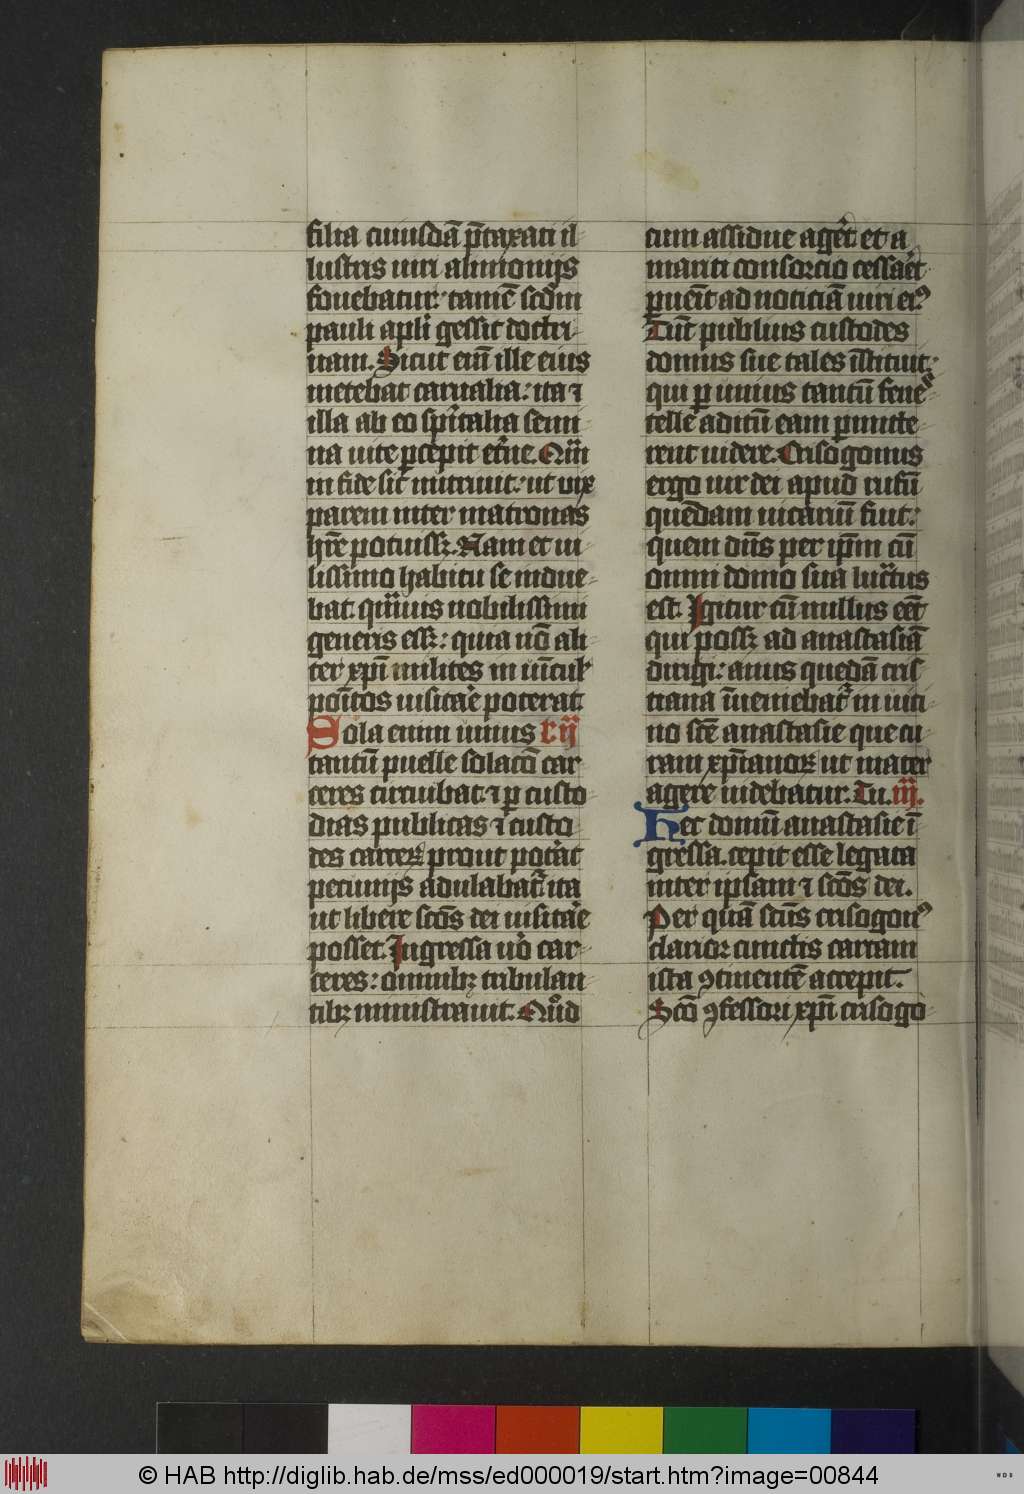 filia cuiusdā p̄taxati il-
lustris uiri alimonijs
fouebatur: tamē scd̄m
pauli apl̓i gessit doctri-
nam. Sicut eni̅ ille eius
metebat carnalia: ita ⁊
illa ab eo sp̄italia semi-
na uite ꝑcepit et̓ne. Qu̅i
in fide sic̄ nutriuit: ut vix
parem inter matronas
hr̄e potuissꝫ. Nam et ui-
lissimo habitu se indue-
bat: qm̄uis nobilissimi
generis essꝫ: quia nō ali-
ter xp̄i milites in uīcul̓
poītos uisitar̓e poterat.
Sola enim unius r. ij
tantū puelle solacō car-
ceres circuibat ⁊ ꝑ custo-
dias publicas ⁊ custo-
des carceꝝ prout pot̓at
pecunijs adulabat̓ ita
ut libere scōs dei uisitar̓e
posset. Ingressa uo̓ car-
ceres: omnibꝫ tribulan-
tibꝫ ministrauit. Qn̄o̓d
cum assidue ager̓et et a
manti consorcio cessar̓et
ꝑuēit ad noticiā uiri eiꝰ
Tūc publius custodes
domus sue tales īstituit:
qui ꝑ unius tantū fene-
telle aditū eam ꝑmicte-
rent uidere. Crisogonus
ergo uir dei apud rufū
quēdam uicariū fuit:
quem dn̄s per ip̄m cū
omni domo sua lucratus
est. Igitur cū nullus eēt
qui possꝫ ad anastasiā
dirigi: anus quedā cris
tiana īueniebat̓ in uici
no scē anastasie que cu
ram xp̄ianoꝝ ut mater
agere uidebatur. Tu. iij.
Hec domū anastasie ī
gressa. cepit esse legata
inter ipsam ⁊ scōs dei.
Per quā scūs crisogonꝰ
clarior cunctis cartam
ista ꝯtinentē accepit.
Scō ꝯfessori xp̄i crisogo
© HAB http://diglib.hab.de/mss/ed000019/start.htm?image=00844